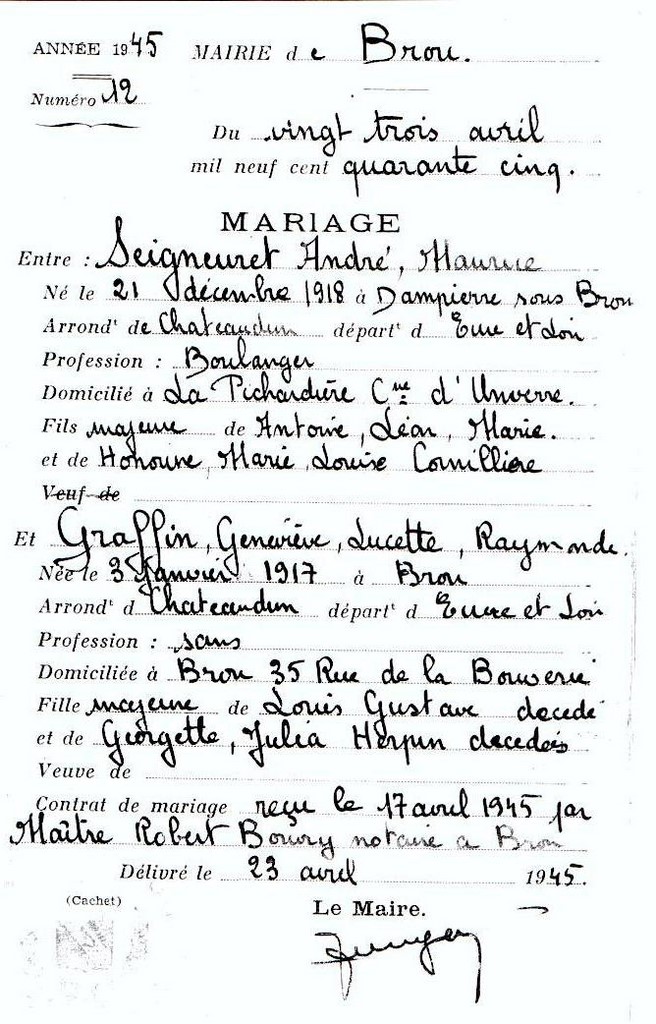 ANNÉE 1945 MAIRIE de Brou.
Numéro 12
Du vingt trois avril
mil neuf cent quarante cinq.
MARIAGE
Entre : Seigneuret André, Maurice
Né le 21 décembre 1918 à Dampierre sous Brou
Arrondt de Chateaudun départt d Eure et Loir
Profession : Boulanger
Domicilié à La Pichardière Cne d'Unverre.
Fils majeur de Antoine, Léon, Marie.
et de Honorine, Marie, Louise Cornillière
Veuf de
Et Graffin, Geneviève, Lucette, Raymonde.
Née le 3 Janvier 1917 à Brou
Arrondt d Chateaudun départt d Eure et Loir
Profession : sans
Domiciliée à Brou 35 Rue de la Bouverie
Fille majeure de Louis Gustave decedé
et de Georgette, Julia Herpin decedeés
Veuve de
Contrat de mariage reçu le 17 avril 1945 par
Maître Robert Boury notaire a Brou
Délivré le 23 avril 1945.
(Cachet) Le Maire.